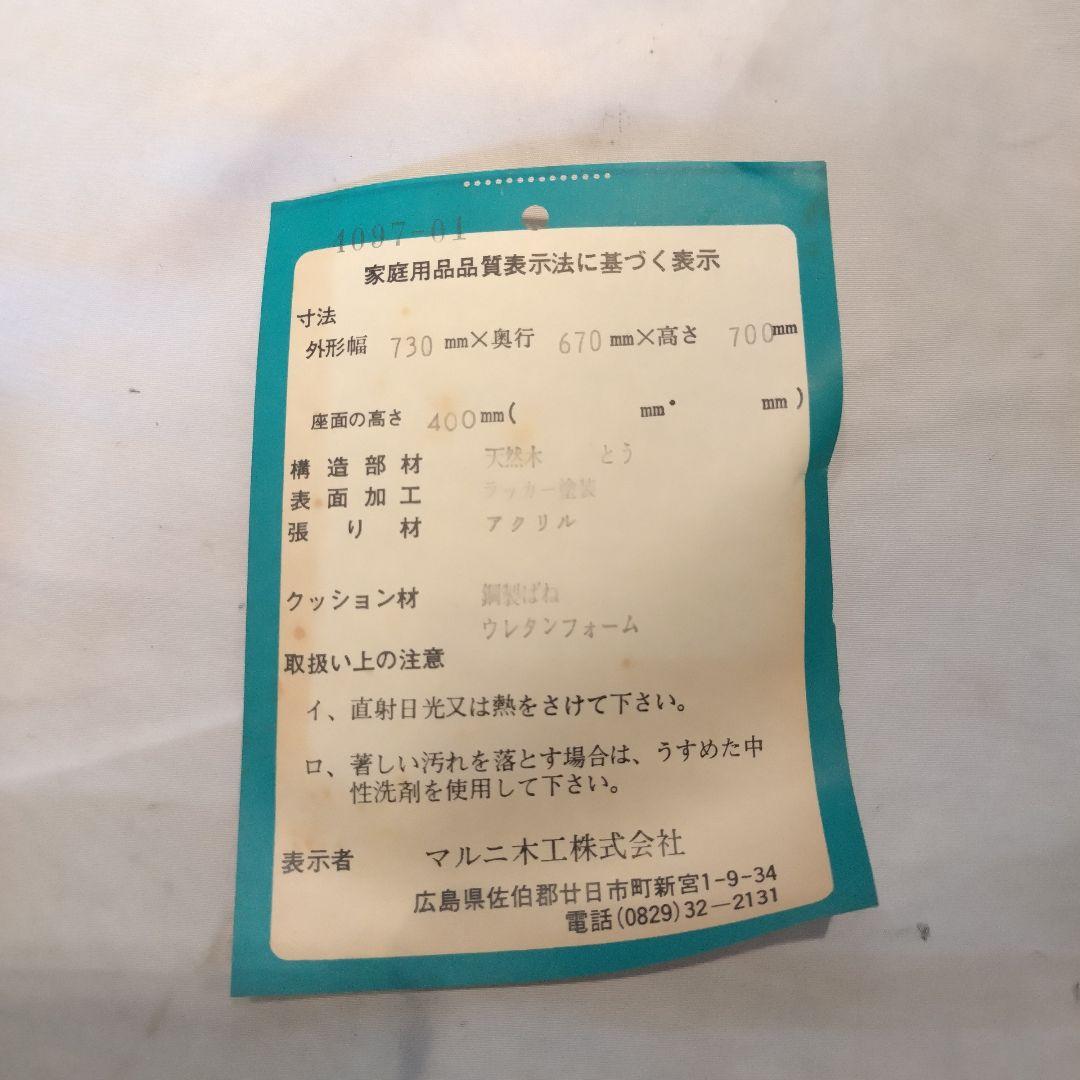 4097-01
家庭用品品質表示法に基づく表示
寸法
外形幅 730 mm×奥行 670 mm×高さ 700mm
座面の高さ 400mm( mm・ mm)
構造部材 天然木 とう
表面加工 ラッカー塗装
張り材 アクリル
クッション材 鋼製ばね
ウレタンフォーム
取扱い上の注意
イ、直射日光又は熱をさけて下さい。
ロ、著しい汚れを落とす場合は、うすめた中
性洗剤を使用して下さい。
表示者 マルニ木工株式会社
広島県佐伯郡廿日市町新宮1-9-34
電話(0829)32―2131